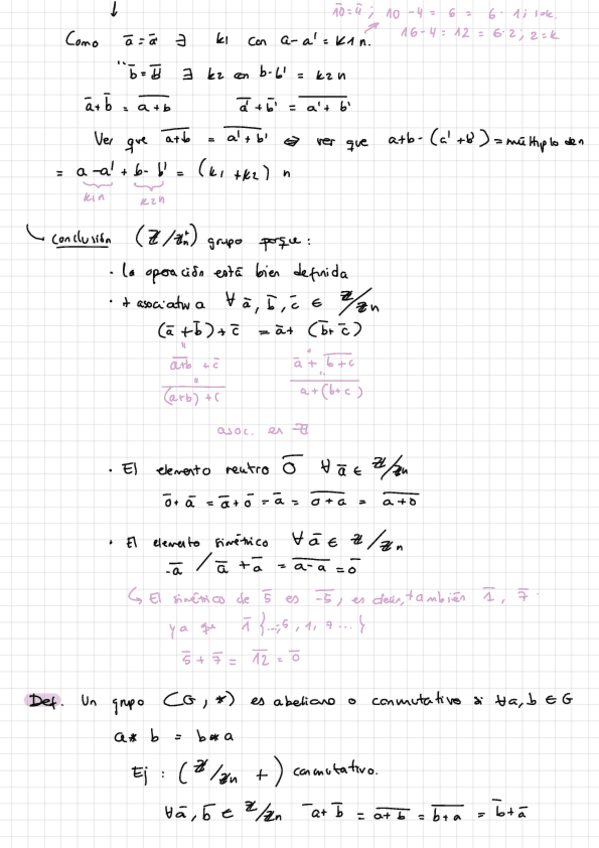 10̄ = 4̄ ; 10 - 4 = 6 = 6 · 1 ; 1 ok.
16 - 4 = 12 = 6 · 2 ; 2 = k
Como ā = ā' ∃ k1 con a - a' = k1 n.
" b̄ = b̄' ∃ k2 con b - b' = k2 n
ā + b̄ = \overline{a+b} ā' + b̄' = \overline{a'+b'}
Ver que \overline{a+b} = \overline{a'+b'} ⇔ ver que a+b - (a'+b') = múltiplo de n
= a - a' + b - b' = (k1 + k2) n
k1n k2n
Conclusión (Z/Zn, +) grupo porque:
· la operación está bien definida
· + asociativa ∀ ā, b̄, c̄ ∈ Z/Zn
(ā + b̄) + c̄ = ā + (b̄ + c̄)
\overline{a+b} + c̄ ā + \overline{b+c}
\overline{(a+b)+c} \overline{a+(b+c)}
asoc. en Z
· El elemento neutro 0̄ ∀ ā ∈ Z/Zn
0̄ + ā = ā + 0̄ = ā = \overline{0+a} = \overline{a+0}
· El elemento simétrico ∀ ā ∈ Z/Zn
-ā / ā + ā = \overline{a-a} = 0̄
↳ El simétrico de 5̄ es \overline{-5}, es decir, también 1̄, 7̄
ya que 1̄ {...,-5, 1, 7 ...}
5̄ + 7̄ = \overline{12} = 0̄
Def. Un grupo (G, *) es abeliano o conmutativo si ∀a, b ∈ G
a * b = b * a
Ej : (Z/Zn +) conmutativo.
∀ā, b̄ ∈ Z/Zn ā + b̄ = \overline{a+b} = \overline{b+a} = b̄ + ā